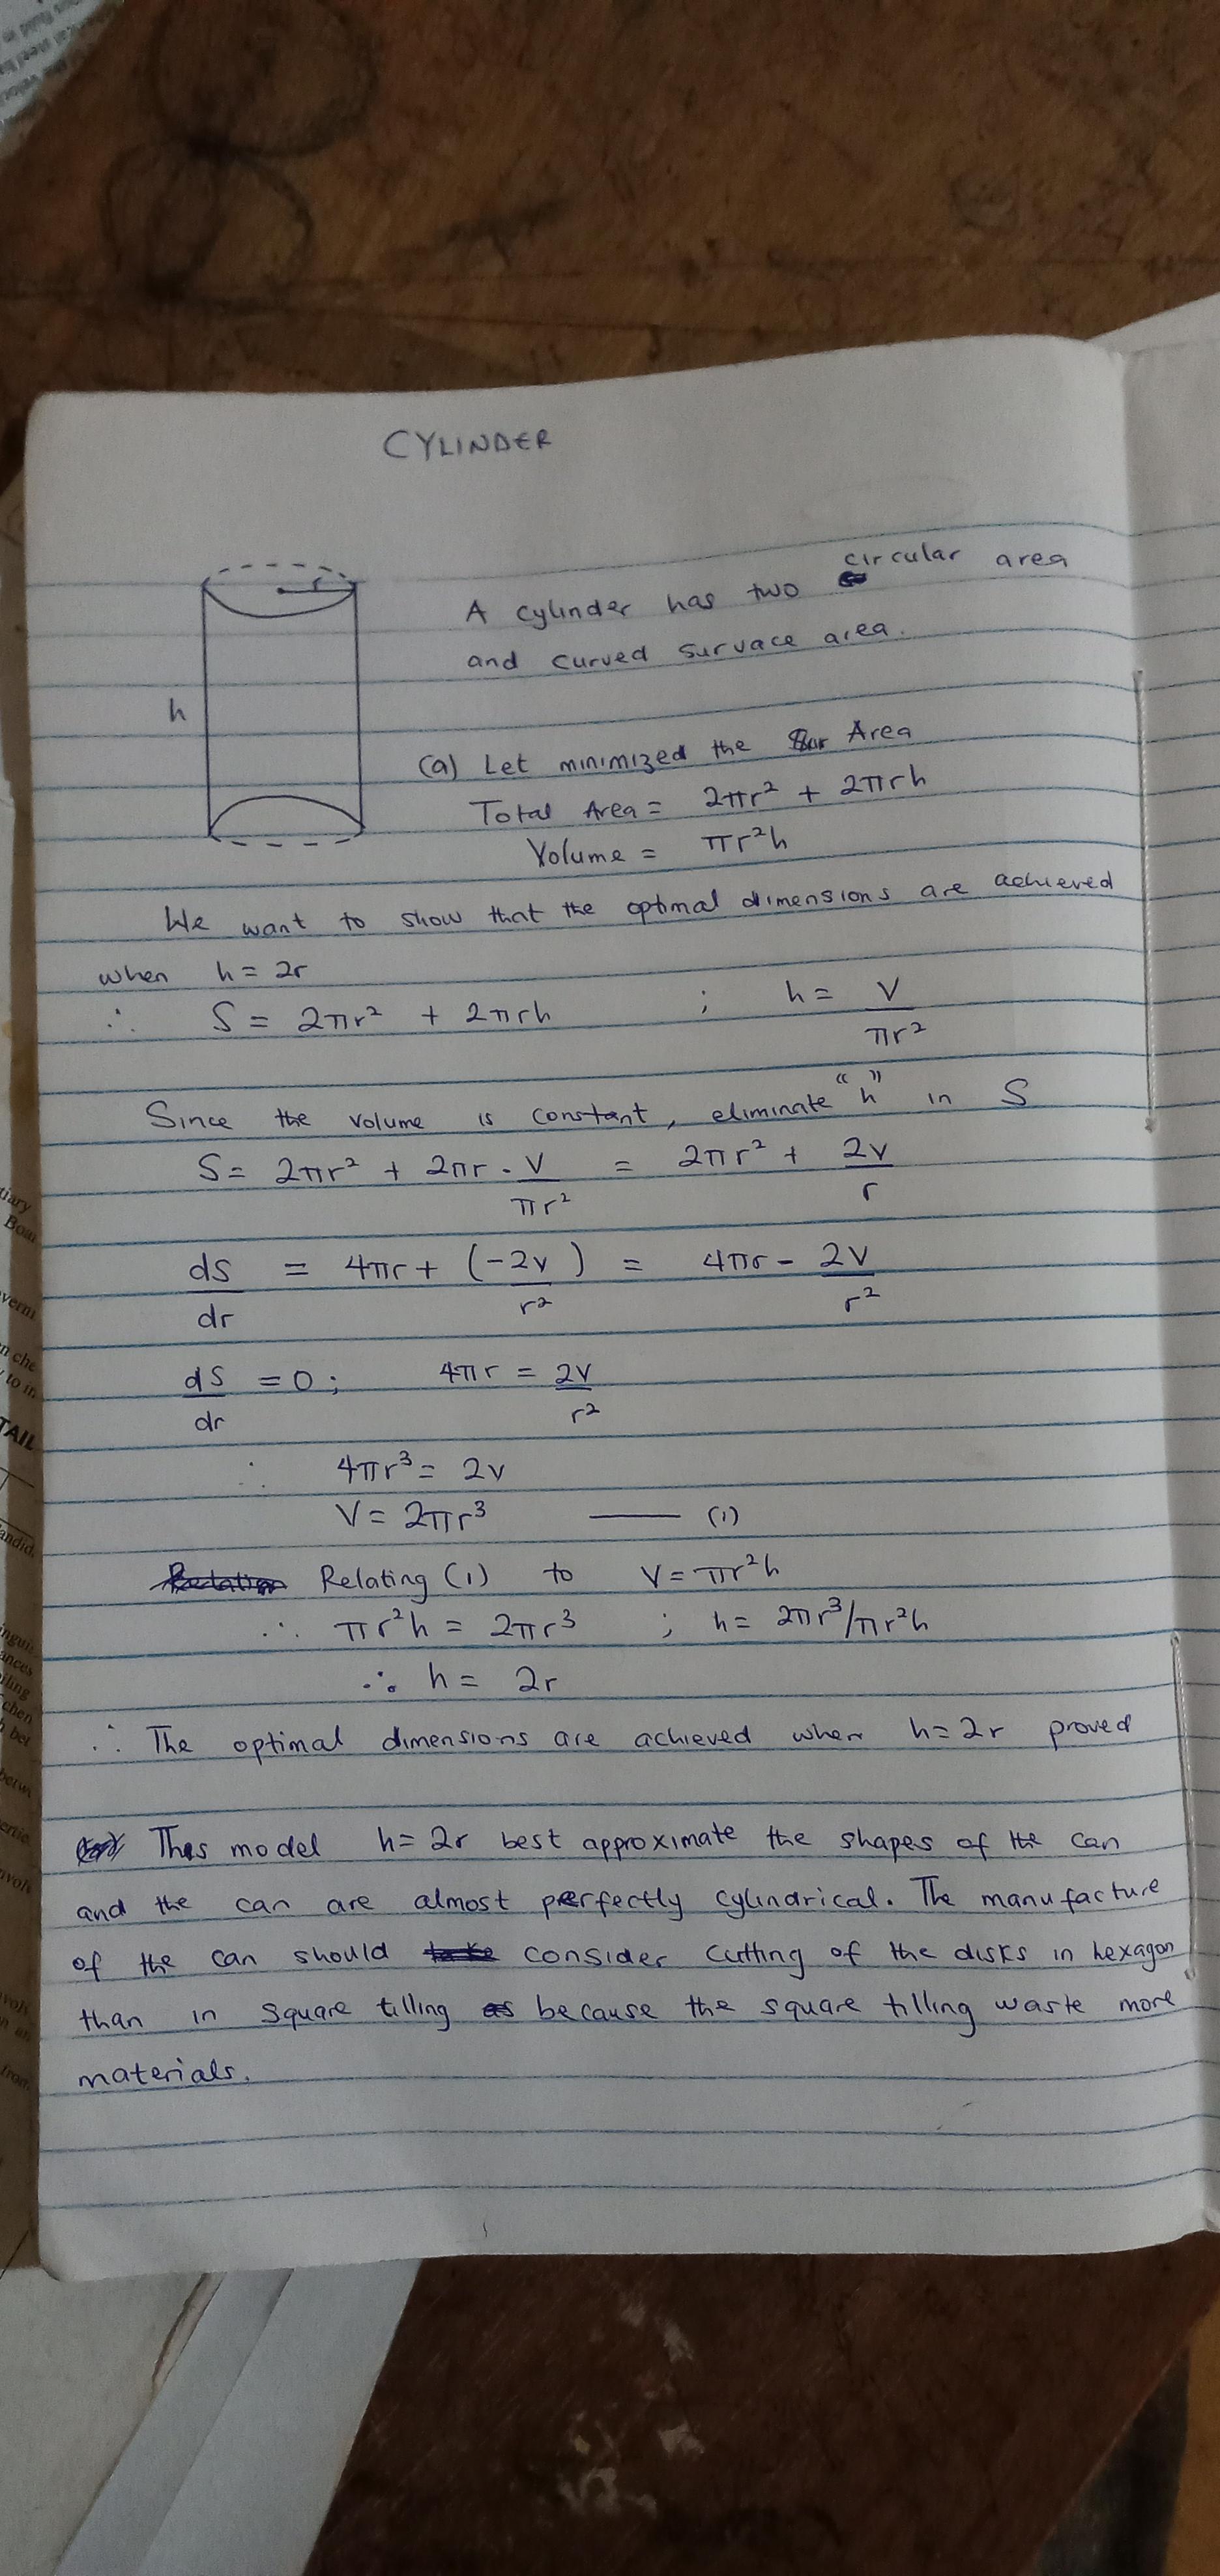 CYLINDER
r
h
A cylinder has two circular area
and curved survace area.
(a) Let minimized the Area
Total Area = 2πr² + 2πrh
Volume = πr²h
We want to show that the optimal dimensions are achieved
when h = 2r
∴ S = 2πr² + 2πrh ; h = V/πr²
Since the volume is constant, eliminate "h" in S
S = 2πr² + 2πr . V/πr² = 2πr² + 2v/r
dS/dr = 4πr + (-2v/r²) = 4πr - 2V/r²
dS/dr = 0 ; 4πr = 2V/r²
∴ 4πr³ = 2v
V = 2πr³ —— (1)
Relating (1) to V = πr²h
∴ πr²h = 2πr³ ; h = 2πr³/πr²h
∴ h = 2r
∴ The optimal dimensions are achieved when h = 2r proved
This model h = 2r best approximate the shapes of the can
and the can are almost perfectly cylindrical. The manufacture
of the can should consider cutting of the disks in hexagon
than in square tilling because the square tilling waste more
materials.